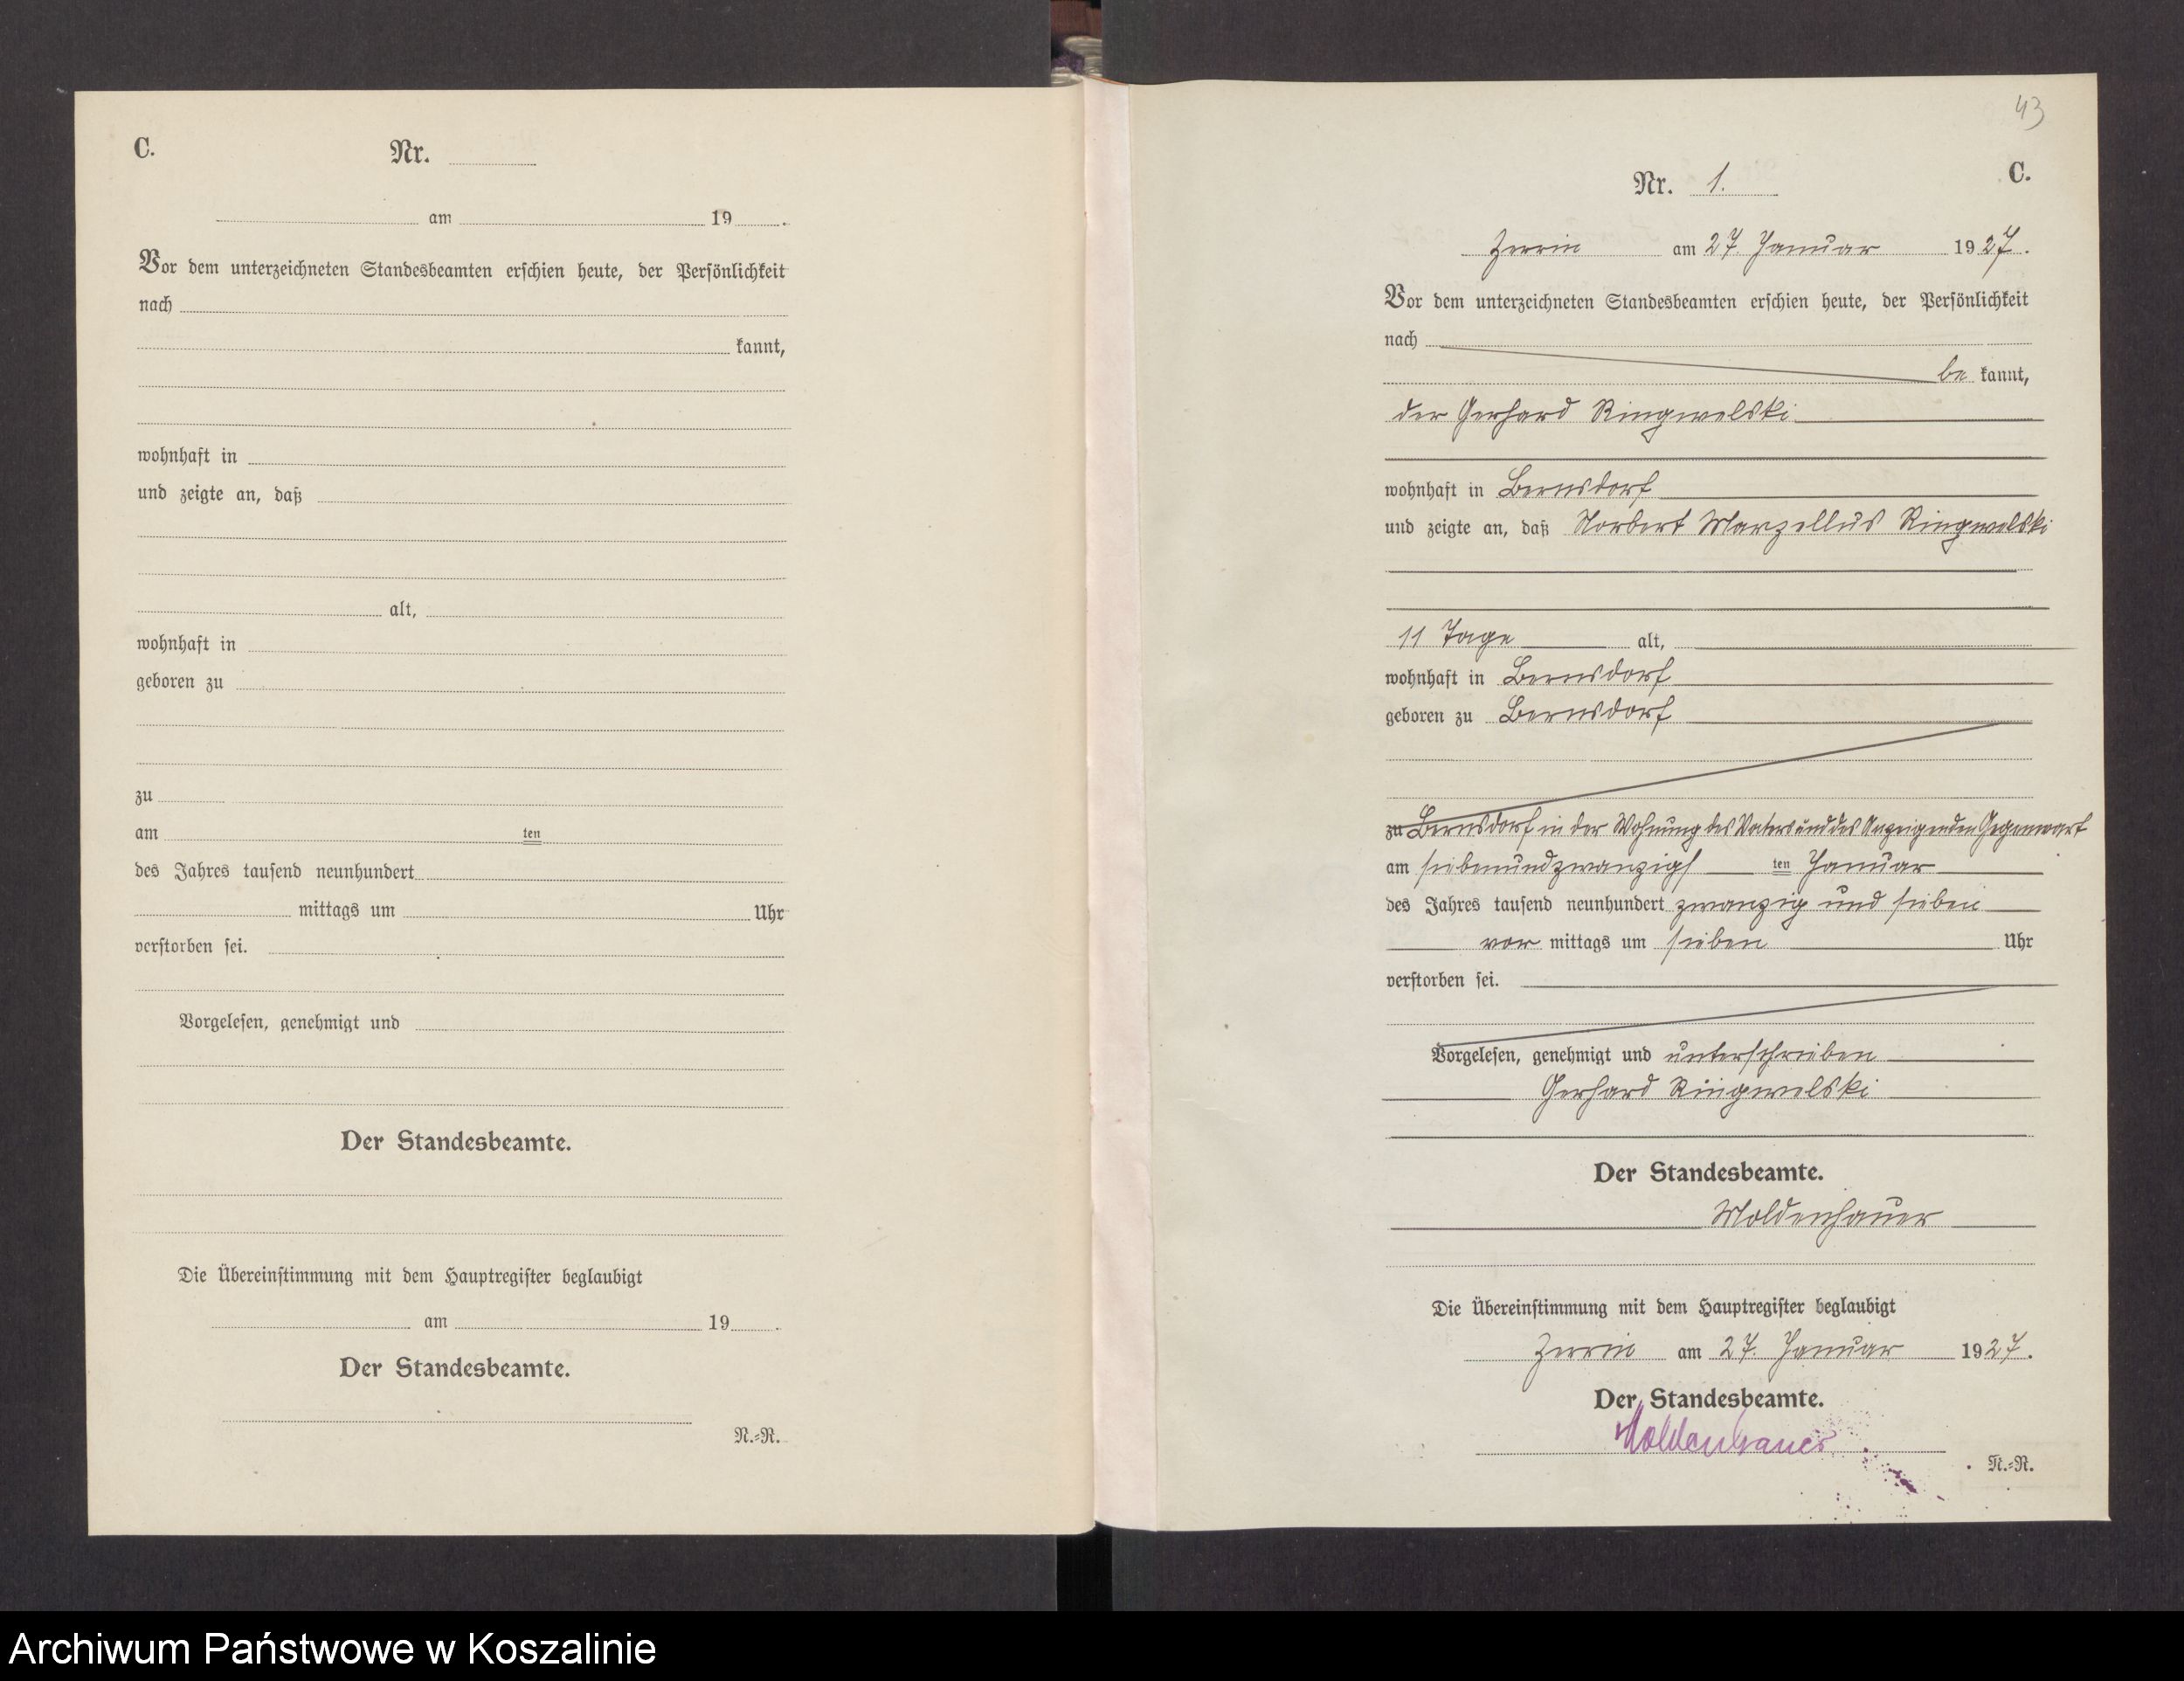 C.
Nr.
am 19 .
Vor dem unterzeichneten Standesbeamten erschien heute, der Persönlichkeit
nach
kannt,
wohnhaft in
und zeigte an, daß
alt,
wohnhaft in
geboren zu
zu
am ten
des Jahres tausend neunhundert
mittags um Uhr
verstorben sei.
Vorgelesen, genehmigt und
Der Standesbeamte.
Die Übereinstimmung mit dem Hauptregister beglaubigt
am 19 .
Der Standesbeamte.
N.=R.
43
C.
Nr. 1.
Zerrin am 27. Januar 1927.
Vor dem unterzeichneten Standesbeamten erschien heute, der Persönlichkeit
nach
be kannt,
der Gerhard Ringwelski
wohnhaft in Bernsdorf
und zeigte an, daß Norbert Marzellus Ringwelski
11 Tage alt,
wohnhaft in Bernsdorf
geboren zu Bernsdorf
zu Bernsdorf in der Wohnung des Vaters und des Anzeigenden Gegenwart
am siebenundzwanzigs ten Januar
des Jahres tausend neunhundert zwanzig und sieben
vor mittags um sieben Uhr
verstorben sei.
Vorgelesen, genehmigt und unterschrieben
Gerhard Ringwelski
Der Standesbeamte.
Moldenhauer
Die Übereinstimmung mit dem Hauptregister beglaubigt
Zerrin am 27. Januar 1927.
Der Standesbeamte.
Moldenhauer
N.=R.
Archiwum Państwowe w Koszalinie